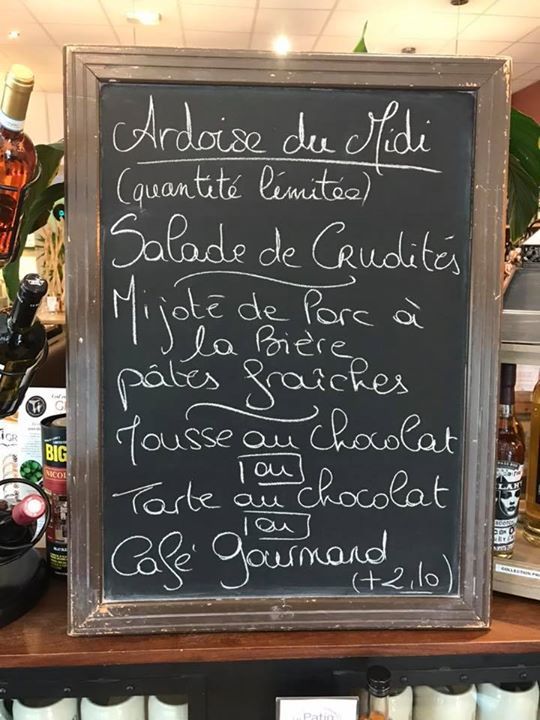 Ardoise du Midi
(quantité limitée)
Salade de Crudités
Mijoté de Porc à
la Bière
pâtes fraîches
Mousse au Chocolat
ou
Tarte au chocolat
ou
Café gourmand
(+2,10)
BIG